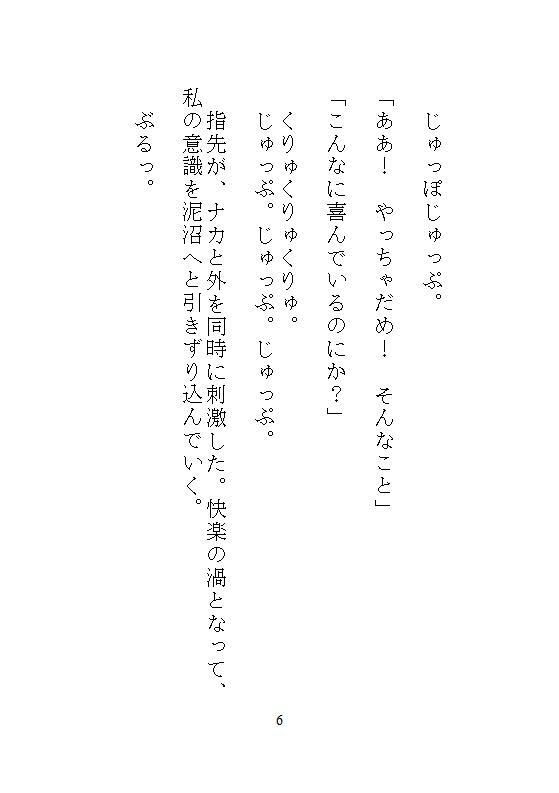 じゅっぽじゅっぷ。
「ああ！　やっちゃだめ！　そんなこと」
「こんなに喜んでいるのにか？」
くりゅくりゅくりゅ。
じゅっぷ。じゅっぷ。じゅっぷ。
指先が、ナカと外を同時に刺激した。快楽の渦となって、
私の意識を泥沼へと引きずり込んでいく。
ぶるっ。
6